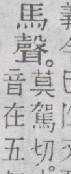 馬聲。莫駕切。
音在五